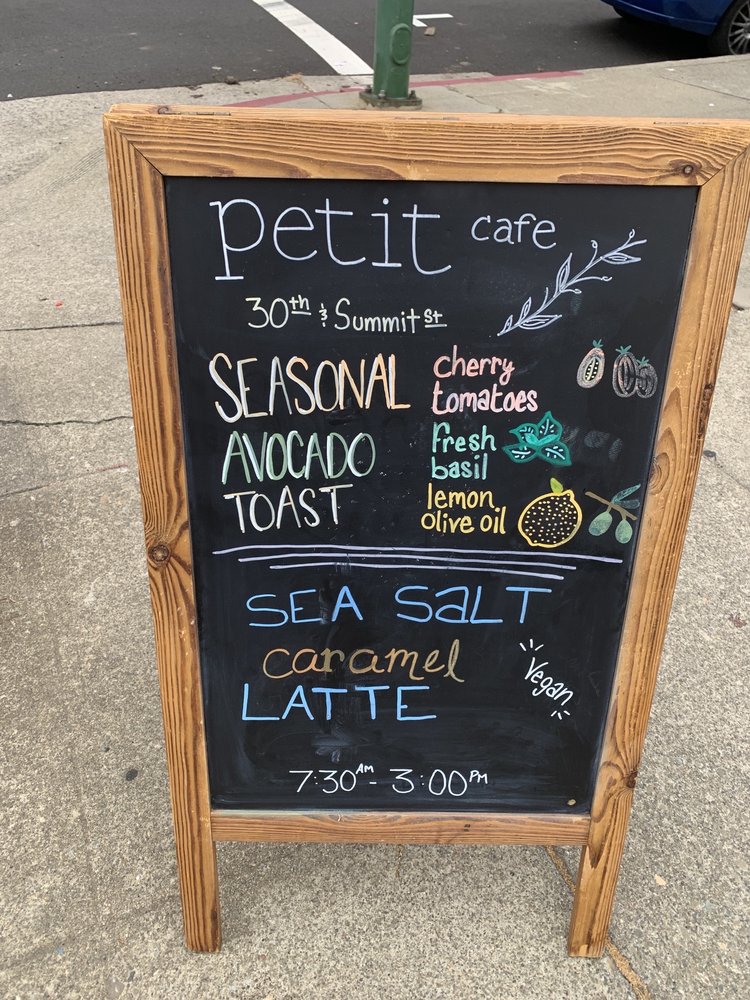 petit cafe
30th & Summit st
SEASONAL
AVOCADO
TOAST
cherry
tomatoes
fresh
basil
lemon
olive oil
SEA SALT
caramel
LATTE
Vegan
7:30AM - 3:00PM